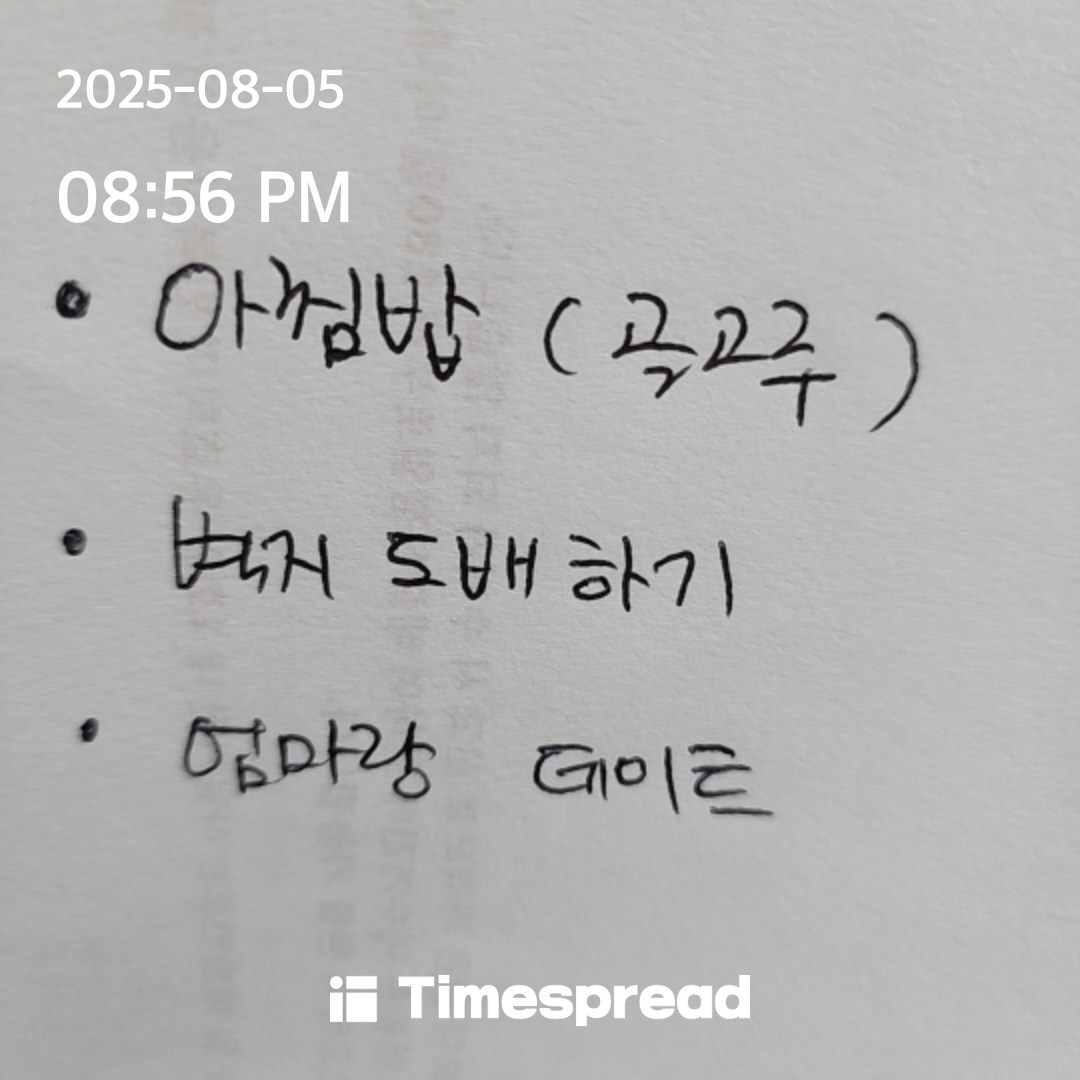 2025-08-05
08:56 PM
• 아침밥 (곡교주)
• 벽지 도배 하기
• 엄마랑 데이트
Timespread